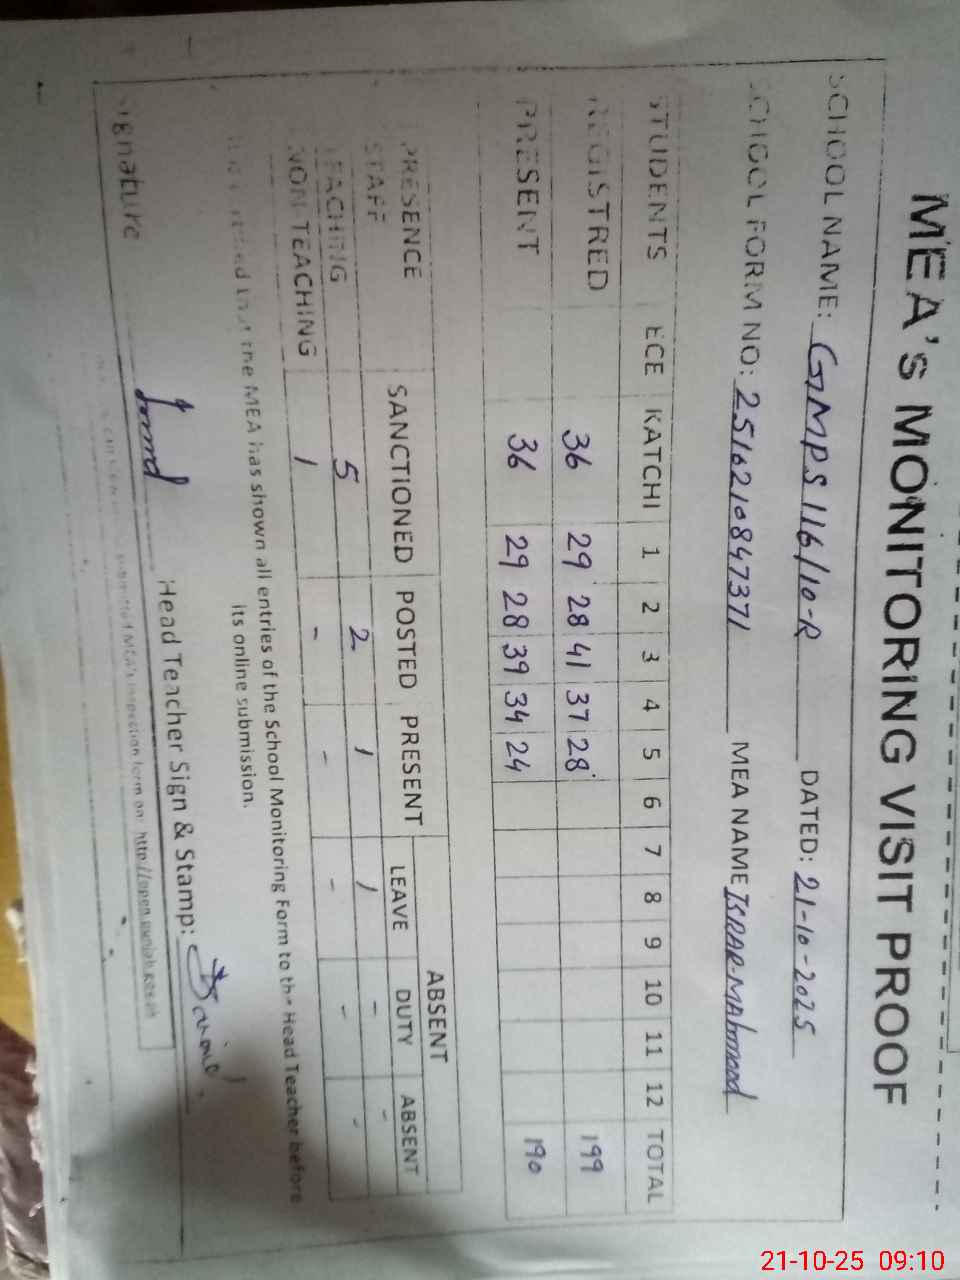 MEA's MONITORING VISIT PROOF
SCHOOL NAME: GMPS 116/10-R DATED: 21-10-2025
SCHOOL FORM NO: 2516210847371 MEA NAME ISRAR-MAhmood
STUDENTS ECE KATCHI 1 2 3 4 5 6 7 8 9 10 11 12 TOTAL
REGISTRED 36 29 28 41 37 28 199
PRESENT 36 29 28 39 34 24 190
ABSENT
PRESENCE SANCTIONED POSTED PRESENT LEAVE DUTY ABSENT
STAFF
TEACHING 5 2 1 1 - -
NON TEACHING 1 - - - - -
that the MEA has shown all entries of the School Monitoring Form to the Head Teacher before
its online submission.
Signature Head Teacher Sign & Stamp:
MEA's inspection form on: http://open.punjab.gov.pk
21-10-25 09:10